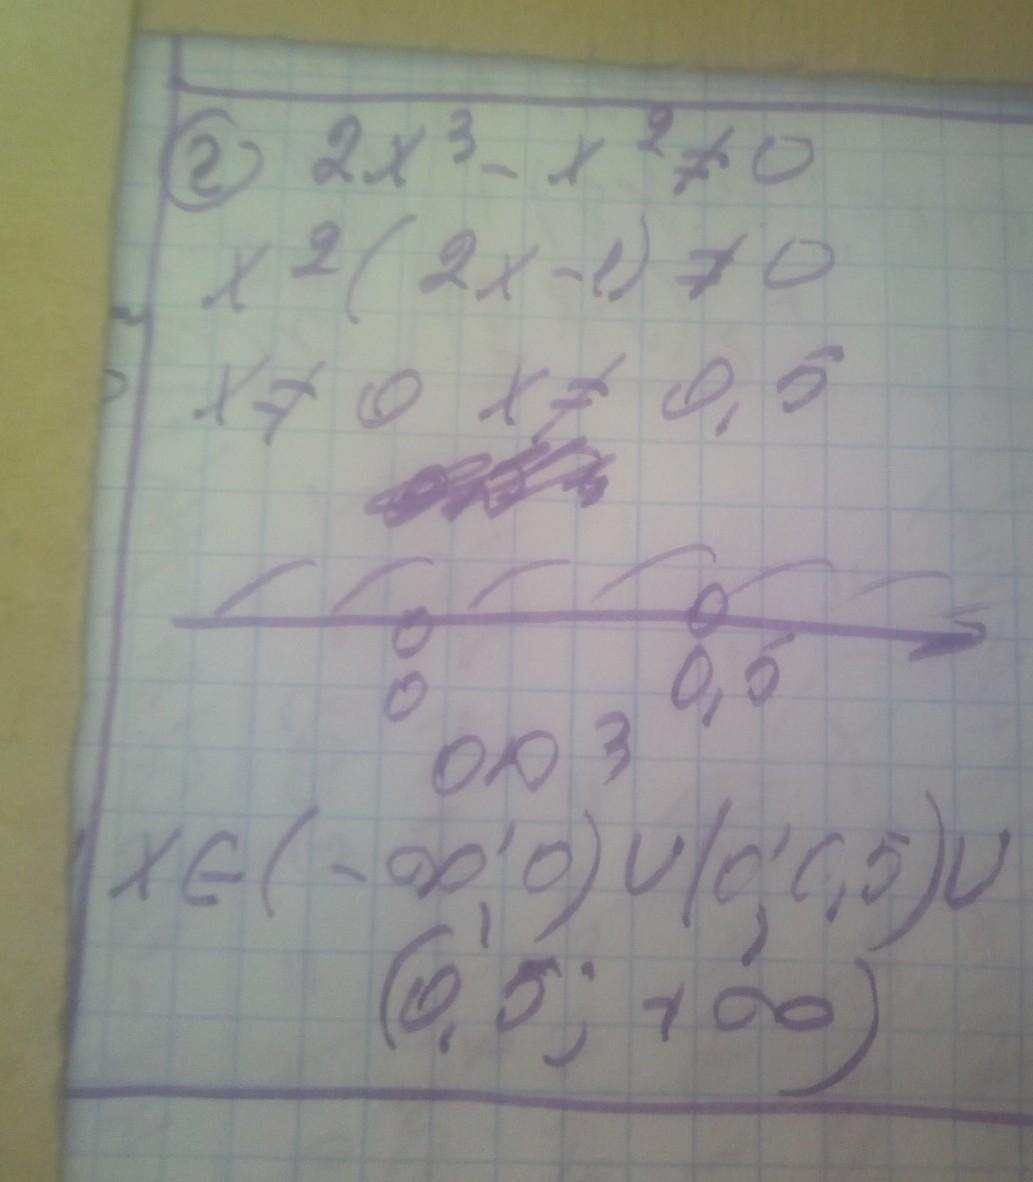 ② 2x³ - x² ≠ 0
x²(2x-1) ≠ 0
x ≠ 0 x ≠ 0,5
0 0,5
ОДЗ
x∈(-∞;0)∪(0;0,5)∪
(0,5; +∞)